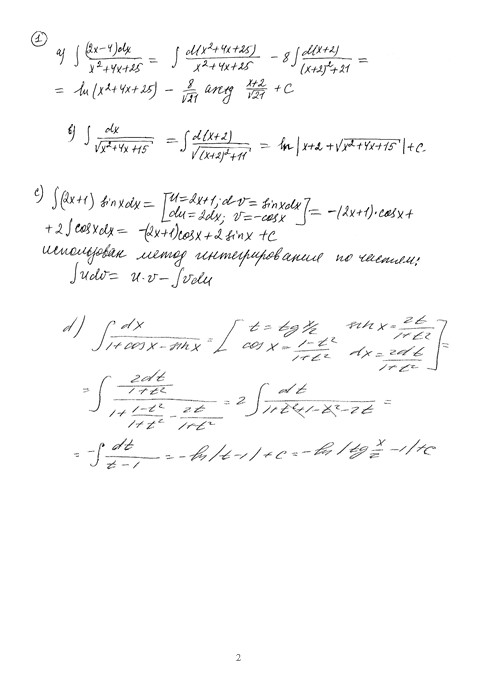 ① a) ∫ (2x-4)dx / x²+4x+25 = ∫ d(x²+4x+25) / x²+4x+25 - 8∫ d(x+2) / (x+2)²+21 =
= ln(x²+4x+25) - 8/√21 arctg x+2/√21 + C
б) ∫ dx / √x²+4x+15 = ∫ d(x+2) / √(x+2)²+11 = ln|x+2+√x²+4x+15| + C.
c) ∫(2x+1) sinxdx = [u=2x+1; dv=sinxdx du=2dx; v=-cosx] = -(2x+1)·cosx+
+2∫cosxdx = -(2x+1)cosx+2sinx+C
использован метод интегрирования по частям:
∫udv= u·v-∫vdu
d) ∫ dx / 1+cosx-sinx = [t=tg x/2 sinx= 2t/1+t² cosx= 1-t²/1+t² dx= 2dt/1+t²] =
= ∫ 2dt/1+t² / 1+ 1-t²/1+t² - 2t/1+t² = 2∫ dt / 1+t²+1-t²-2t =
= -∫ dt / t-1 = -ln|t-1|+C = -ln|tg x/2 -1|+C
2